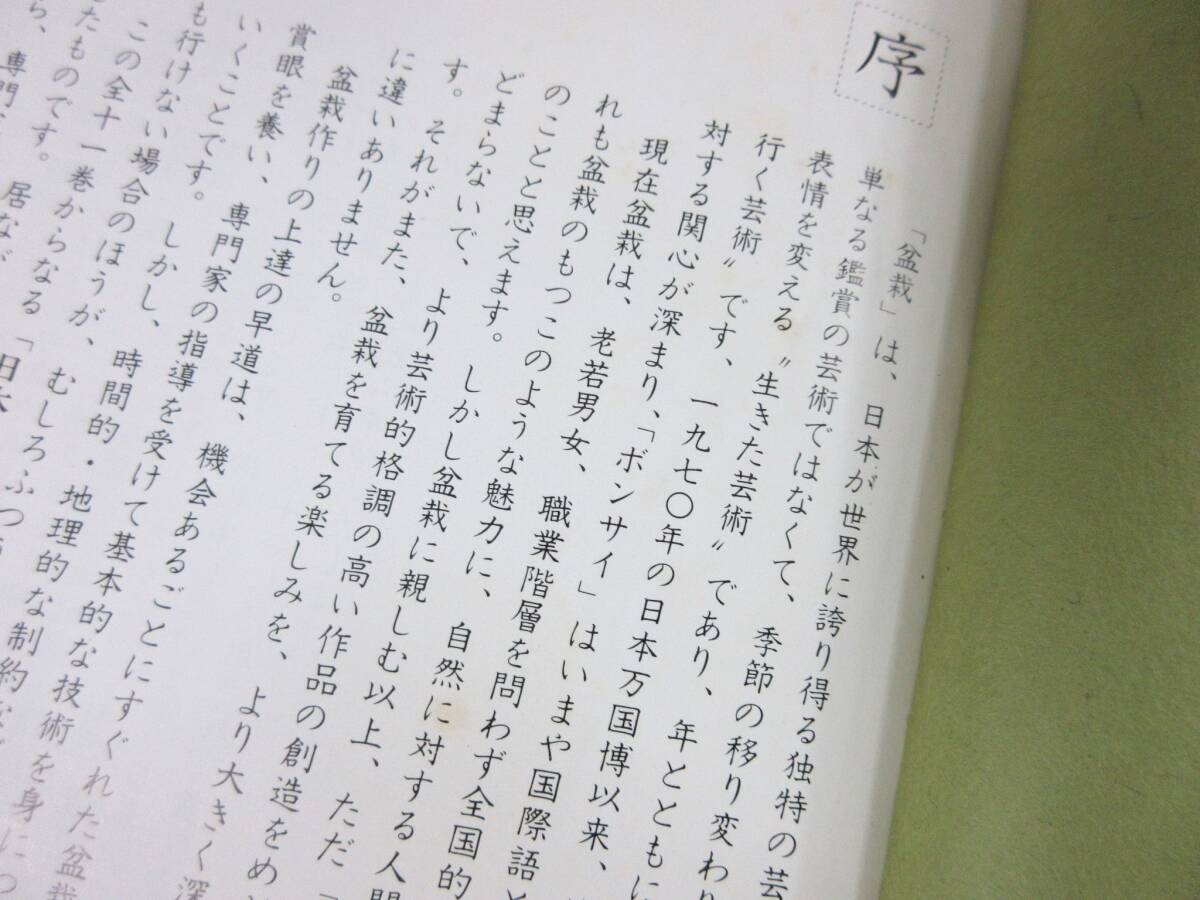 序
「盆栽」は、日本が世界に誇り得る独特の芸
単なる鑑賞の芸術ではなくて、季節の移り変わり
表情を変える〝生きた芸術〟であり、年とともに
行く芸術〟です、一九七〇年の日本万国博以来、
対する関心が深まり、「ボンサイ」はいまや国際語と
現在盆栽は、老若男女、職業階層を問わず全国的
れも盆栽のもつこのような魅力に、自然に対する人間
のことと思えます。しかし盆栽に親しむ以上、ただ「
どまらないで、より芸術的格調の高い作品の創造をめ
す。それがまた、盆栽を育てる楽しみを、より大きく深
に違いありません。
盆栽作りの上達の早道は、機会あるごとにすぐれた盆栽
賞眼を養い、専門家の指導を受けて基本的な技術を身につ
いくことです。しかし、時間的・地理的な制約な
も行けない場合のほうが、むしろふつう
この全十一巻からなる「日本
たものです。居なが
ら、専門